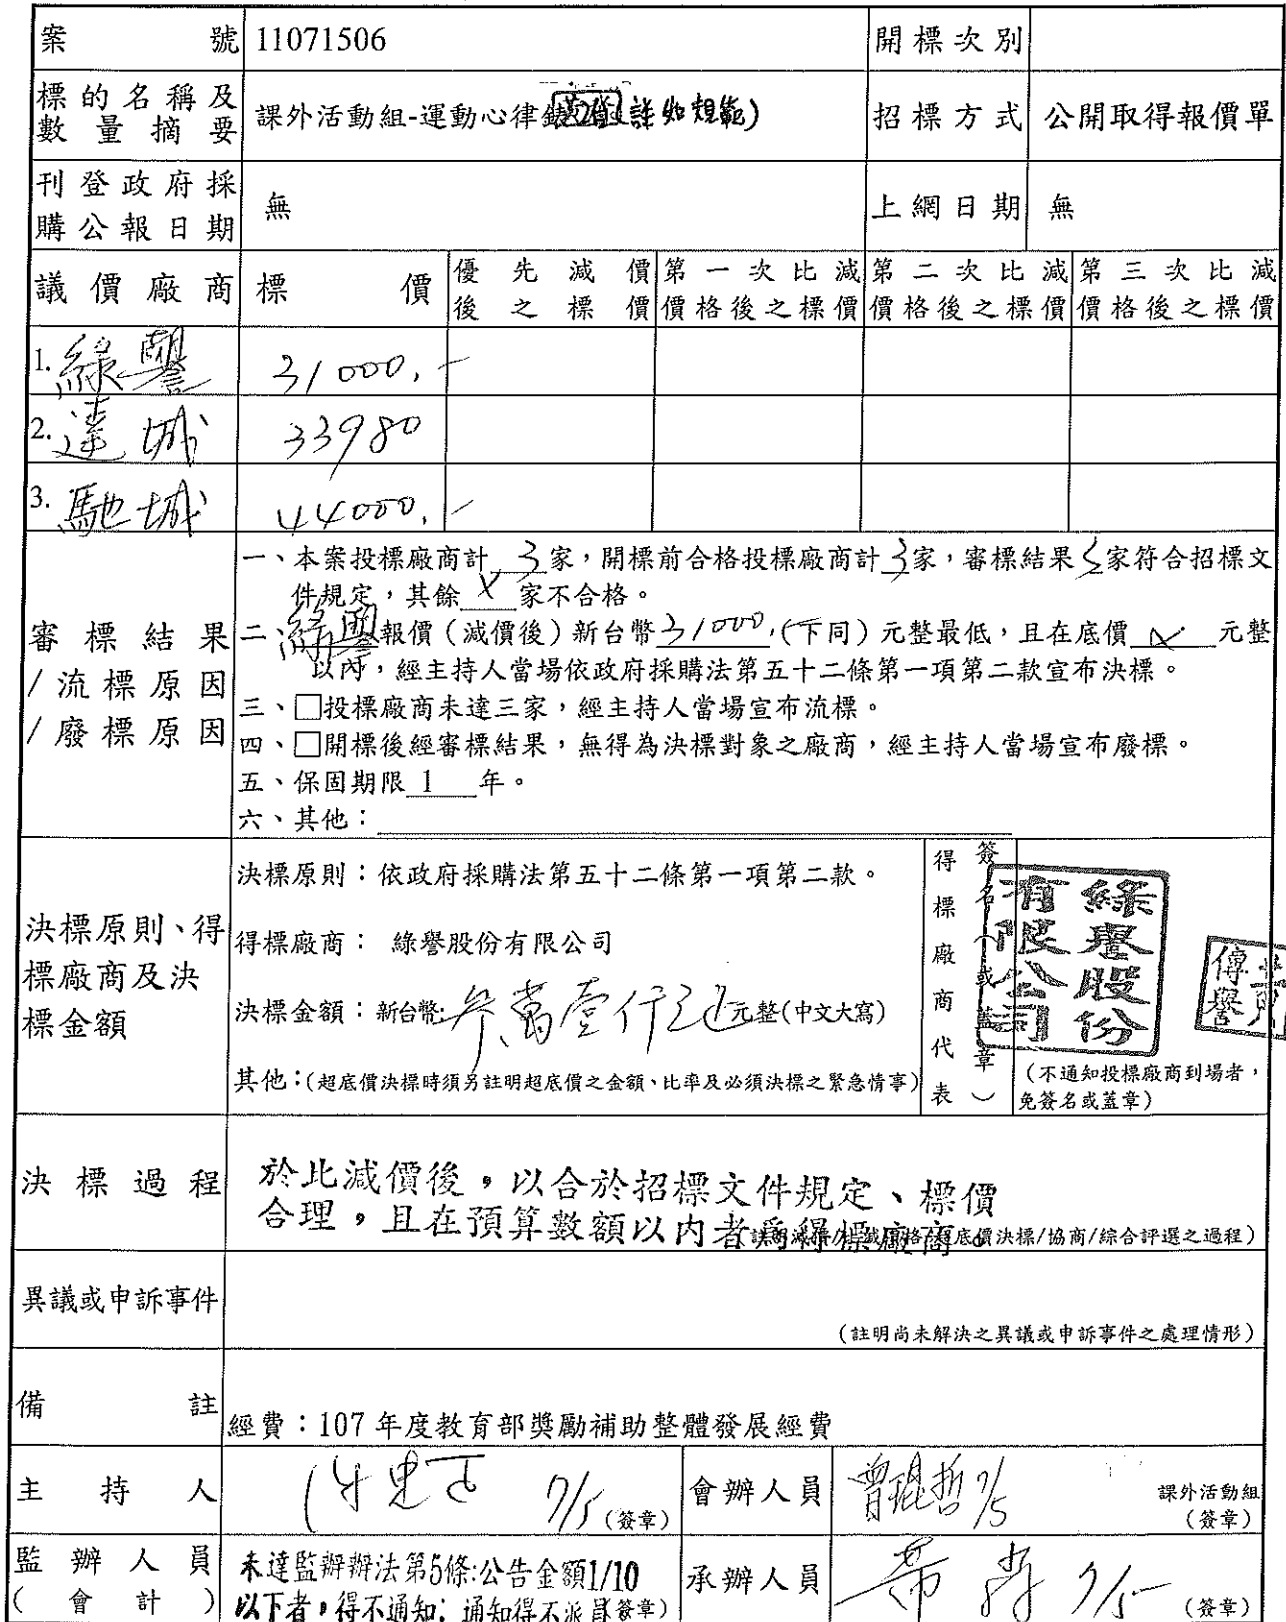 案號 11071506 開標次別
標的名稱及數量摘要 課外活動組-運動心律錶 (詳如規範) 招標方式 公開取得報價單
刊登政府採購公報日期 無 上網日期 無
議價廠商 標價 優先減價後之標價 第一次比減價格後之標價 第二次比減價格後之標價 第三次比減價格後之標價
1. 綠譽 31000.-
2. 達城 33980
3. 馳城 44000.-
審標結果/流標原因/廢標原因
一、本案投標廠商計 3 家，開標前合格投標廠商計 3 家，審標結果 3 家符合招標文
件規定，其餘 X 家不合格。
二、綠譽 報價（減價後）新台幣 31000.（下同）元整最低，且在底價 X 元整
以內，經主持人當場依政府採購法第五十二條第一項第二款宣布決標。
三、□投標廠商未達三家，經主持人當場宣布流標。
四、□開標後經審標結果，無得為決標對象之廠商，經主持人當場宣布廢標。
五、保固期限 1 年。
六、其他：
決標原則、得標廠商及決標金額
決標原則：依政府採購法第五十二條第一項第二款。
得標廠商： 綠譽股份有限公司
決標金額：新台幣: 參萬壹仟元整(中文大寫)
其他：(超底價決標時須另註明超底價之金額、比率及必須決標之緊急情事)
得標廠商代表
簽名（或蓋章）
綠譽股份
有限公司
傳譽
（不通知投標廠商到場者，
免簽名或蓋章）
決標過程
於比減價後，以合於招標文件規定、標價
合理，且在預算數額以內者為得標廠商。
底價決標/協商/綜合評選之過程）
異議或申訴事件
（註明尚未解決之異議或申訴事件之處理情形）
備註
經費：107 年度教育部獎勵補助整體發展經費
主持人 7/5 (簽章) 會辦人員 曾琨哲 7/5 課外活動組
(簽章)
監辦人員(會計)
未達監辦辦法第5條:公告金額1/10
以下者，得不通知; 通知得不派員 (簽章)
承辦人員 7/5 (簽章)